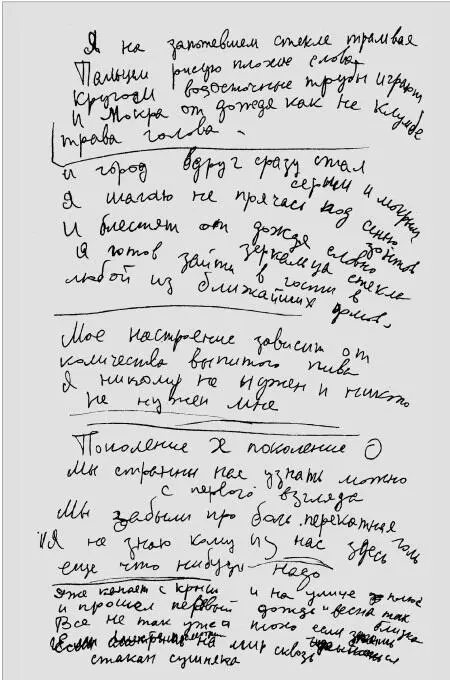 Я на запотевшем стекле трамвая
Пальцем рисую плохие слова
Кругом водосточные трубы играют
И мокра от дождя как на клумбе
трава голова.
и город вдруг сразу стал
серым и мокрым
Я шагаю не прячась под сенью зонтов
И блестят от дождя словно
зеркальца стекла
Я готов зайти в гости в
любой из ближайших домов.
Мое настроение зависит от
количества выпитого пива
Я никому не нужен и никто
не нужен мне
Поколение X поколение 0
Мы странны нас узнать можно
с первого взгляда
Мы забыли про боль перекатная голь
Я не знаю кому из нас здесь
еще что нибудь надо
Уже капает с крыш и на улице
и прошел первый дождь и весна так близка
Все не так уж и плохо если
Если смотреть на мир сквозь
стакан сушняка